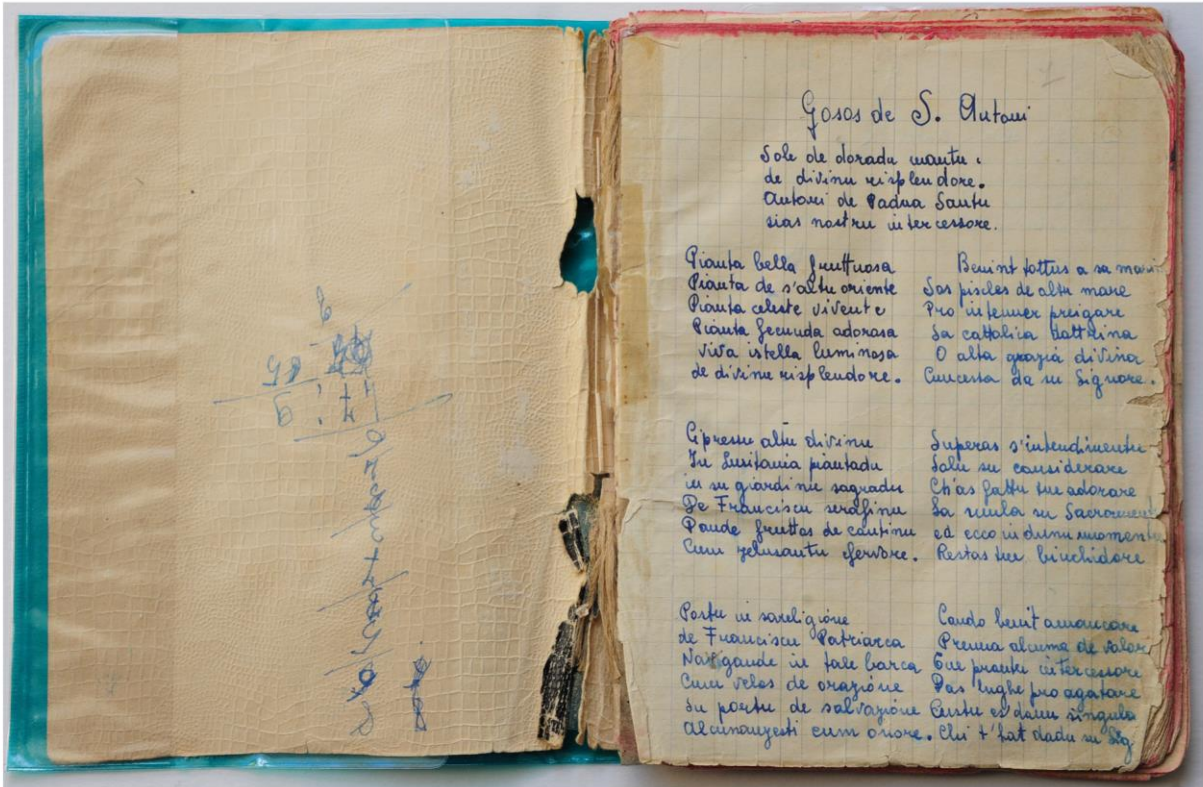 Gosos de S. Antoni
Sole de doradu mantu
de divinu risplendore.
Antoni de Padua Santu
sias nostru intercessore.
Pianta bella fruttuosa
Pianta de s'altu oriente
Pianta celeste vivente
Pianta fecunda adorosa
viva istella luminosa
de divinu risplendore.
Cipressu altu divinu
In Lusitania piantadu
in su giardinu sagradu
De Franciscu serafinu
Pande fruttos de cantinu
Cum zelusantu fervore.
Postu in sareligione
de Franciscu Patriarca
Navigande in tale barca
Cum velos de orazione
su portu de salvazione
cum onore.
Benint tottus a sa
Sos pisches de altu mare
Pro intenner preigare
Sa cattolica dottrina
O alta grazia divina
Cuncessa da su Signore.
Superas s'intendimentu
Solu su considerare
Ch'as fattu tue adorare
Sa mula su
ed ecco in dunu momentu
Restas tue binchidore
Cando benit a mancare
Prenna alcuna de valor
Ene prontu intercessore
Das lughe pro agatare
Custu es donu singula
Chi t'hat dadu su Sig